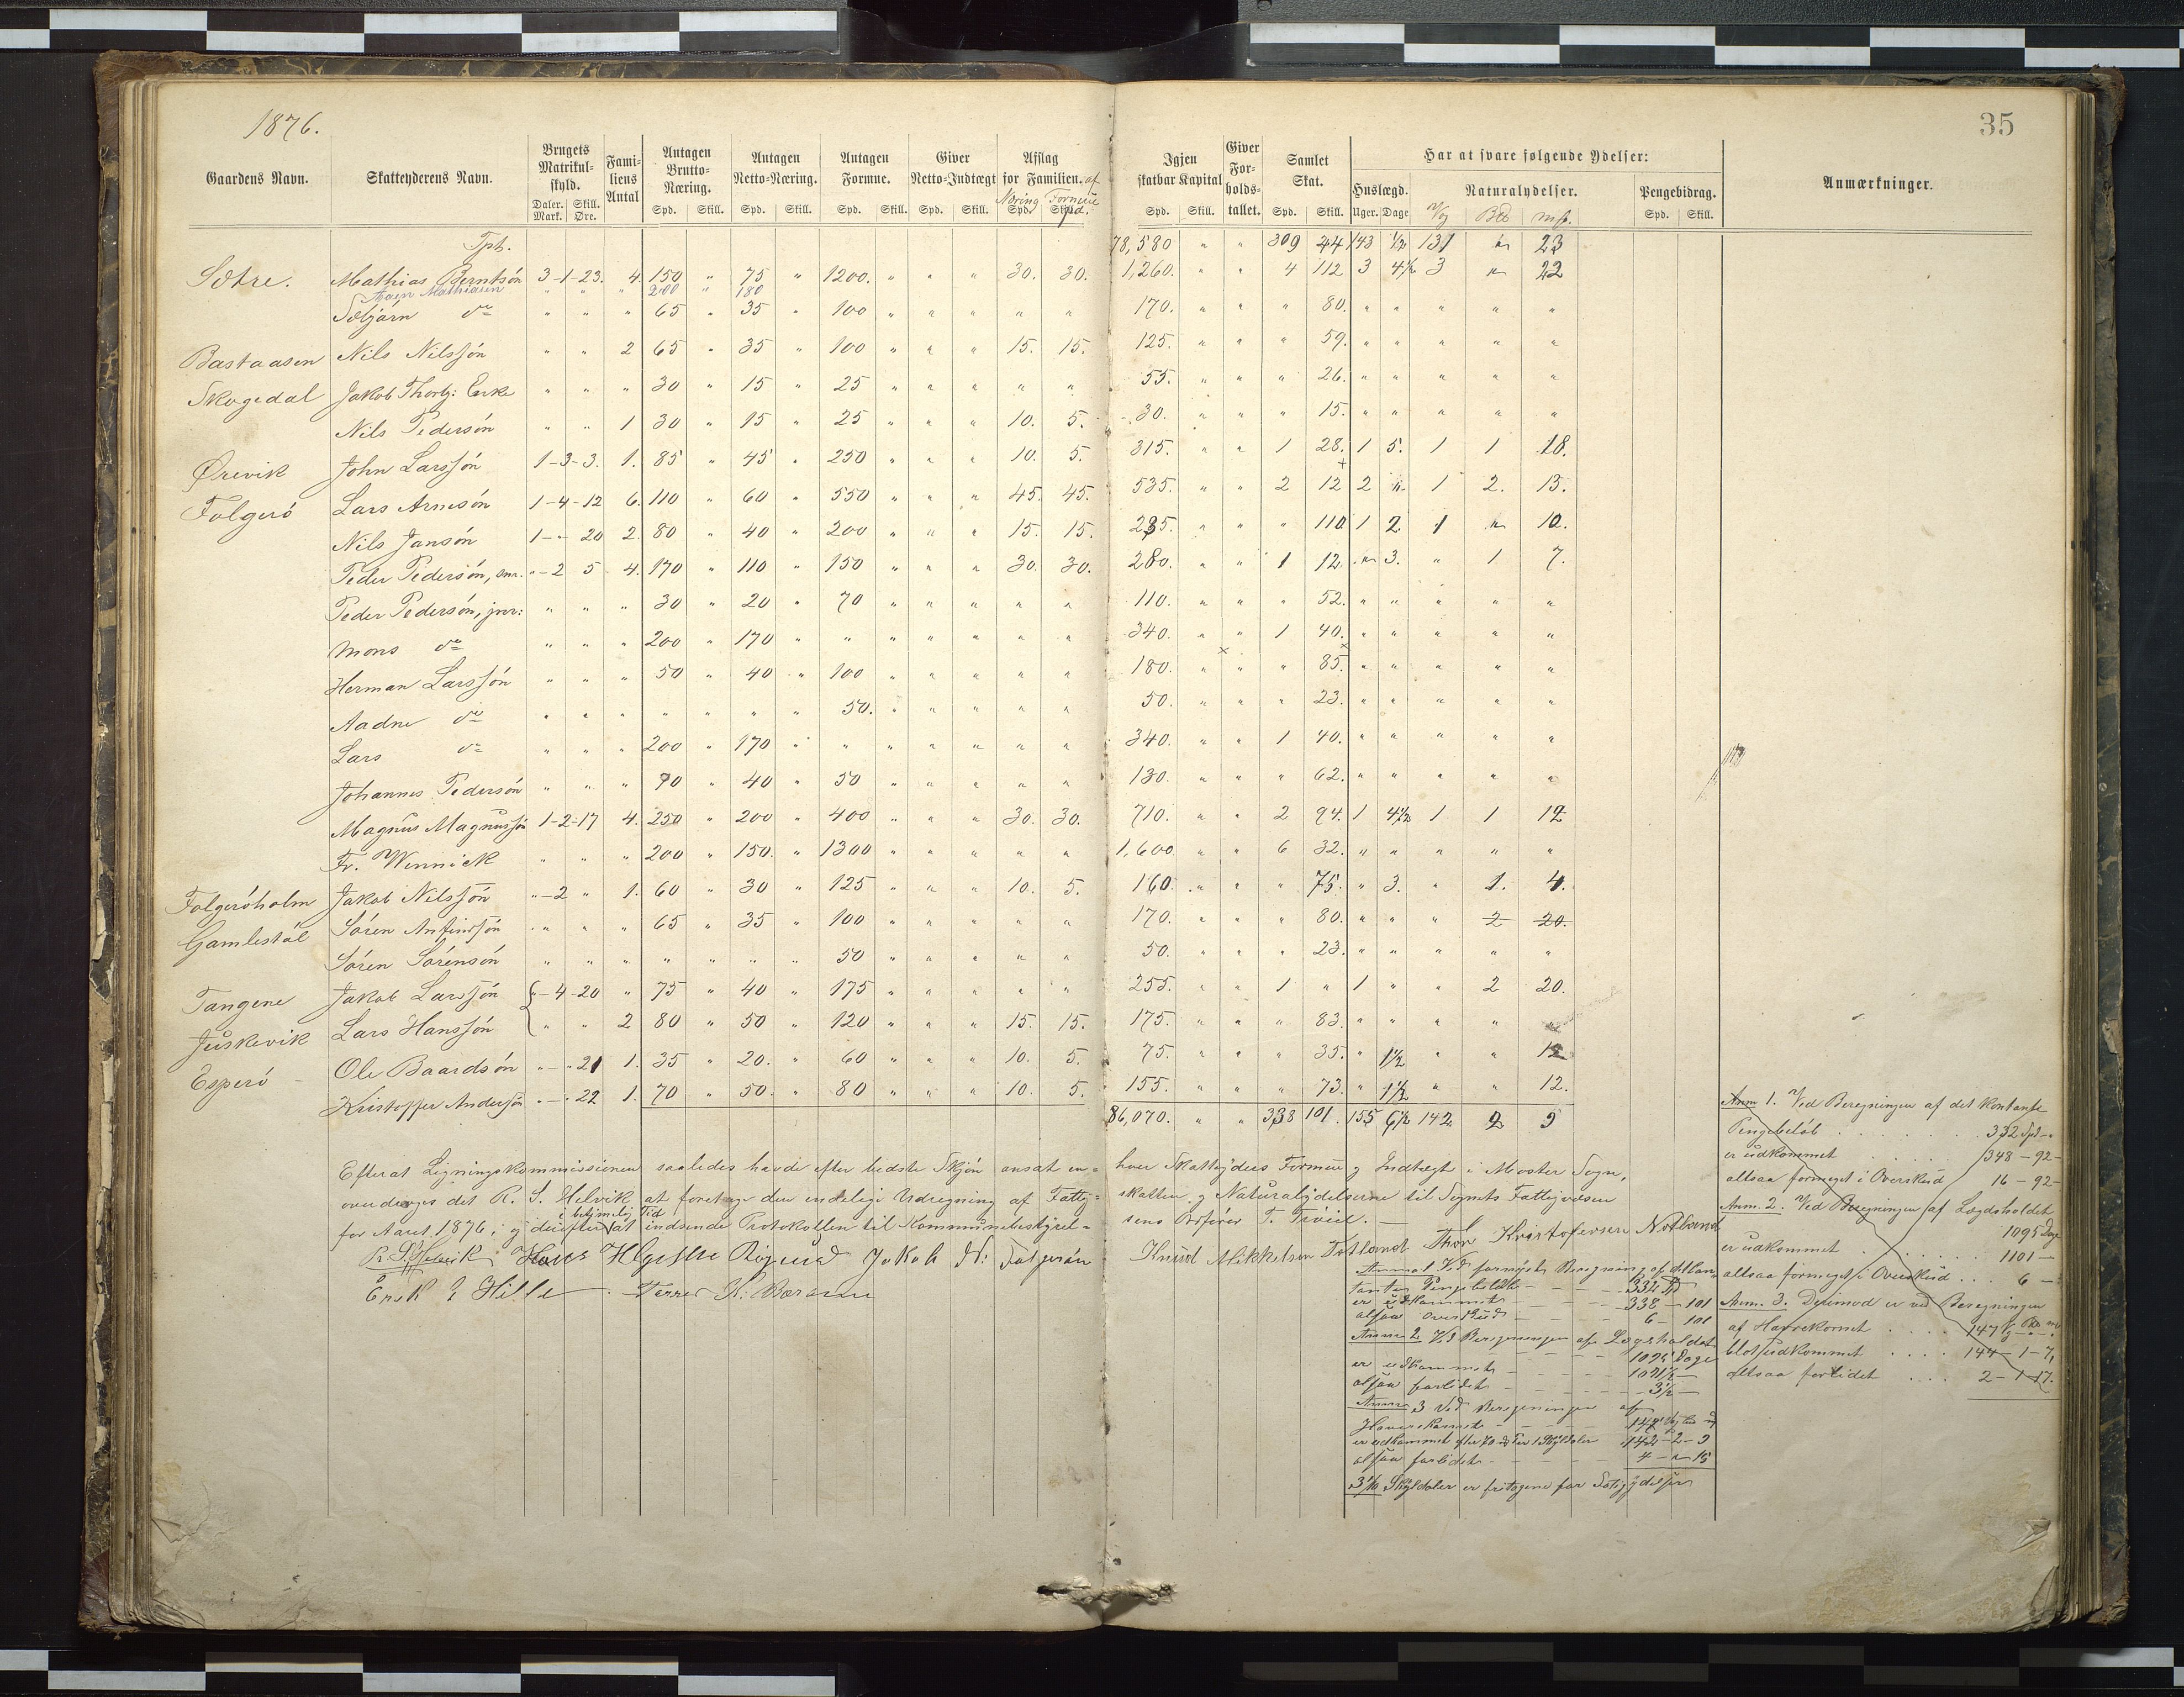 1876.
35
Gaardens Navn. Skatteyderens Navn. Brugets Matrikul-skyld. Daler. Mark. Skill. Øre. Familiens Antal Antagen Brutto-Næring. Spd. Skill. Antagen Netto-Næring. Spd. Skill. Antagen Formue. Spd. Skill. Giver Netto-Indtægt Spd. Skill. Afslag for Familien. af Næring Spd. Formue Spd. Igjen skatbar Kapital Spd. Skill. Giver Forholdstallet. Samlet Skat. Spd. Skill. Har at svare følgende Ydelser: Huslægd. Uger. Dage Naturalydelser. Vog Bd mk. Pengebidrag. Spd. Skill. Anmærkninger.
Tpt. 78,580 " " 309 44 143 1/2 131 " 23
Sætre. Mathias Berntsön 3-1-23. 4. 150 " 75 " 1200. " " " 30. 30. 1,260. " " 4 112 3 4 1/2 3 " 22
Mathiasen " " " 200 " 180
Sæbjörn do " " " 65 " 35 " 100 " " " " " 170. " " " 80. " " " " "
Bastaasen Nils Nilssön " " 2 65 " 35 " 100 " " " 15. 15. 125. " " " 59. " " " " "
Skogedal Jakob Thorbj: Enke " " " 30 " 15 " 25 " " " " " 55. " " " 26. " " " " "
Nils Pedersön " " 1 30 " 15 " 25 " " " 10. 5. 30. " " " 15. " " " " "
Ørevik John Larssön 1-3-3. 1. 85 " 45 " 250 " " " 10. 5. 315. " " 1 28. 1 5. 1 1 18.
Folgerö Lars Arnesön 1-4-12 6. 110 " 60 " 550 " " " 45. 45. 535. " " 2 12 2 " 1 2. 13.
Nils Jansön 1-"-20 2. 80 " 40 " 200 " " " 15. 15. 235. " " " 110 1 2 1 " 10.
Peder Pedersön, snr. "-2 5 4. 170 " 110 " 150 " " " 30. 30. 280. " " 1 12. " 3. " 1 7.
Peder Pedersön, jnr: " " " 30 " 20 " 70 " " " " " 110. " " " 52. " " " " "
Mons do " " " 200 " 170 " " " " " " " 340. " " 1 40. " " " " "
Herman Larssön " " " 50 " 40 " 100 " " " " " 180. " " " 85. " " " " "
Aadne do " " " " " " " 50. " " " " " 50. " " " 23. " " " " "
Lars do " " " 200 " 170 " " " " " " " 340. " " 1 40. " " " " "
Johannes Pedersön " " " 70 " 40 " 50 " " " " " 130. " " " 62. " " " " "
Magnus Magnussön 1-2-17 4. 250 " 200 " 400 " " " 30. 30. 710. " " 2 94. 1 4 1/2 1 1 12
Fr. Wennick " " " 200 " 150. " 1300 " " " " " 1,600 " " 6 32. " " " " "
Folgeröholm Jakob Nilssön "-2 " 1. 60 " 30 " 125 " " " 10. 5. 160. " " " 75. " 3. " 1. 4.
Gamlestöl Sören Anfinssön " " " 65 " 35 " 100 " " " " " 170. " " " 80. " " " 2 20.
Sören Sörensön " " " " " " " 50 " " " " " 50. " " " 23. " " " " "
Tangene Jakob Larssön "-4-20 " 75 " 40 " 175 " " " " " 255. " " 1 " 1 " " 2 20.
Juskevik Lars Hanssön " " 2 80 " 50 " 120 " " " 15. 15. 175. " " " 83. " " " "
Esperö Ole Baardsön "-"-21 1. 35 " 20. " 60 " " " 10. 5. 75. " " " 35. " 1 1/2 " " 12
Kristoffer Andersön "-"-22 1. 70 " 50. " 80 " " " 10. 5. 155. " " " 73. " 1 1/2 " " 12.
86,070. " " 338 101. 155 6 1/2 142 2 9
Efterat Ligningskommissionen saaledes havde efter bedste Skjön ansat enhver Skatteyders Formue og Indtægt i Moster Sogn,
overdroges det R. S. Helvik at foretage den endelige Udregning af Fattigskatten og Naturalydelserne til Sognets Fattigvæsen
i betimelig Tid
for Aaret 1876, og derefter at indsende Protokollen til Kommunebestyrelsens Ordförer T. Tröiel. —
R. S. Helvik Hans Jakob N: Folgerön Knud Mikkelsen Totland Thor Kristofersen Notland
Erik E Hille
Anm 1. Ved Beregningen af det kontante
Pengebelöb . . . 332 Spd "
er udkommet . . . 348 - 92 -
altsaa formeget i Overskud 16 - 92 -
Anm. 2. Ved Beregningen af Lægdsholdet
1095 Dage
er udkommet . . . 1101 —
altsaa formeget i Overskud . . . 6 —
Anm. 3. Derimod er ved Beregningen
af Havrekornet . . . 147
blot udkommet . . . 144 - 1 - 7,
altsaa forlidet . . . 2 - 1 - 17.
Anm 1 Ved fornyet Beregning af det kon-
tante Pengebelöb - - - 332
er udkommet - - - 338 - 101
altsaa Overskud - - - 6 - 101
Anm 2 Ved Beregningen af Lægdsholdet
1095 Dage
er udkommet - - - 1091 1/2 —
altsaa forlidet - - - 3 1/2 —
Anm 3 Ved Beregningen af
Havrekornet - - - 147
er udkommet efter 142 - 2 - 9
altsaa forlidet - - - 4 - " 15
Skylddaler er fritagene for